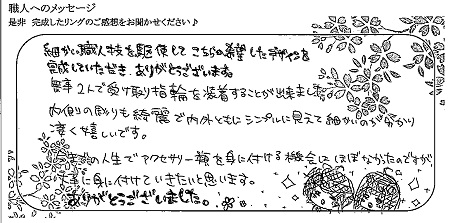 職人へのメッセージ
是非 完成したリングのご感想をお聞かせください♪
細かい職人技を駆使して こちらの希望したデザインを
完成していただき、ありがとうございます。
無事2人で受け取り指輪を装着することが出来ました
内側の彫りも綺麗で内外ともにシンプルに見えて細かいのが分かり
凄く嬉しいです。
までの人生でアクセサリー類を身に付ける機会は ほぼなかったのですが
に身に付けていきたいと思います。
ありがとうございました。